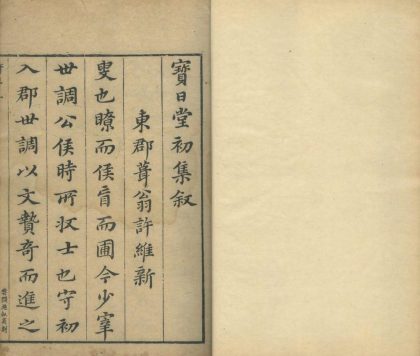 寶日堂初集叙
東郡葺翁許維新
叟也瞭而侯盲而圃今少宰
世調公侯時所収士也守初
入郡世調以文贄奇而進之